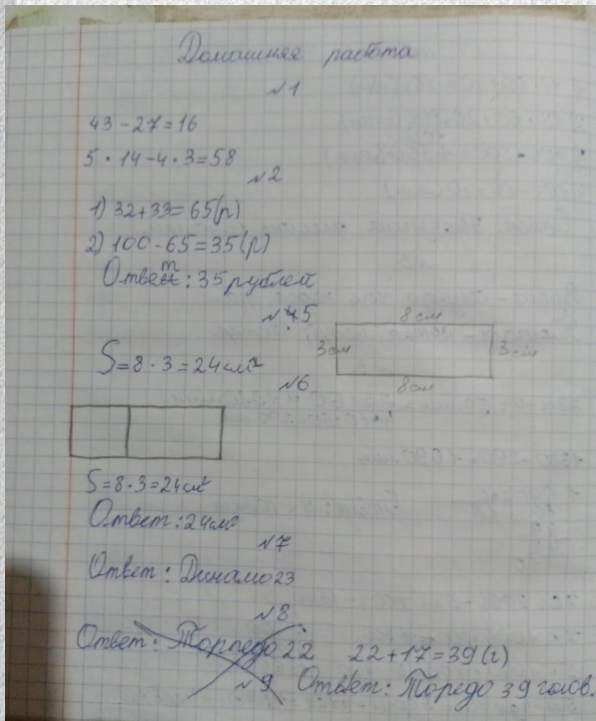 Домашняя работа
№1
43-27=16
5·14-4·3=58
№2
1) 32+33=65(р)
2) 100-65=35(р)
Ответ: 35 рублей
№5
8 см
3 см
3 см
8 см
S=8·3=24см²
№6
S=8·3=24см²
Ответ: 24см²
№7
Ответ: Динамо 23
№8
Ответ: Торпедо 22 22+17=39(г)
№9 Ответ: Торедо 39 голов.